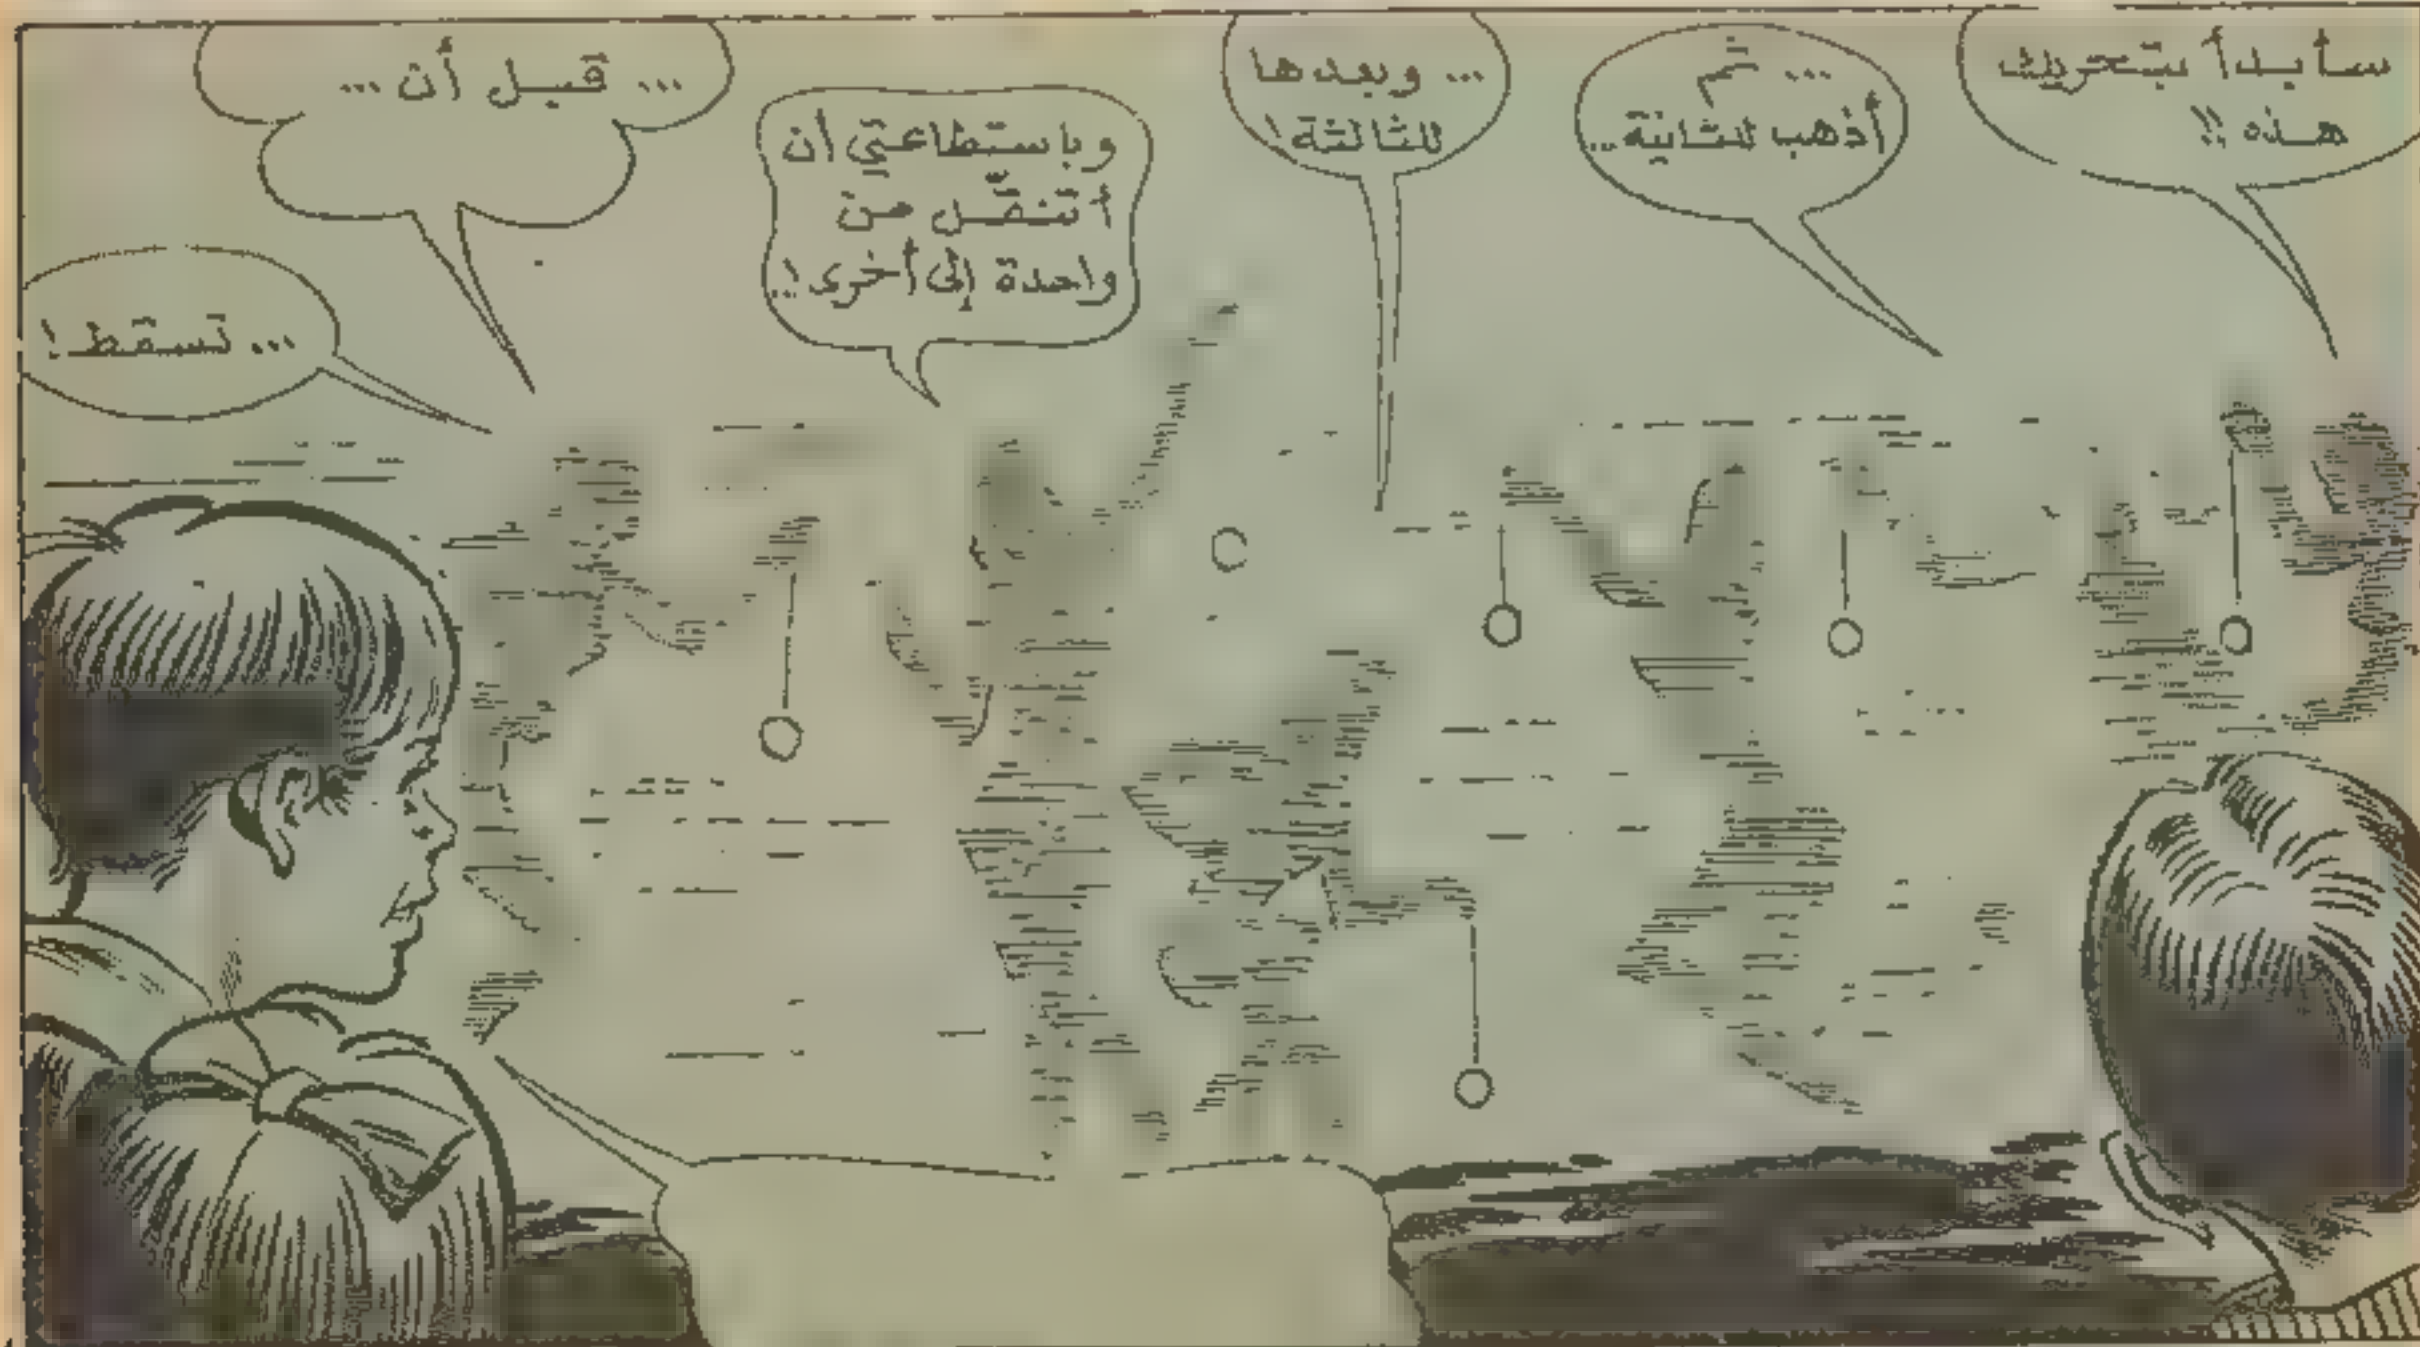 سأبدأ بتحريك
هذه !!
... ثم
أذهب للثانية ...
... وبعدها
للثالثة !
وباستطاعتي أن
أتنقّل من
واحدة إلى أخرى !..
... قبل أن ...
... تسقط !